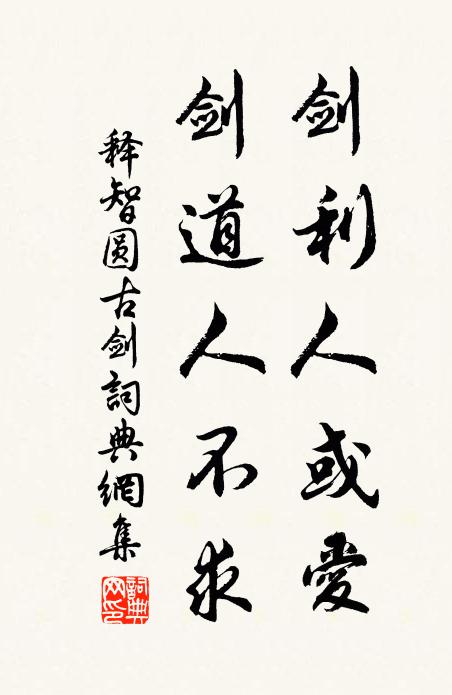 剑利人或愛
剑道人不求
释智圆古剑詞典網集
詞典网印